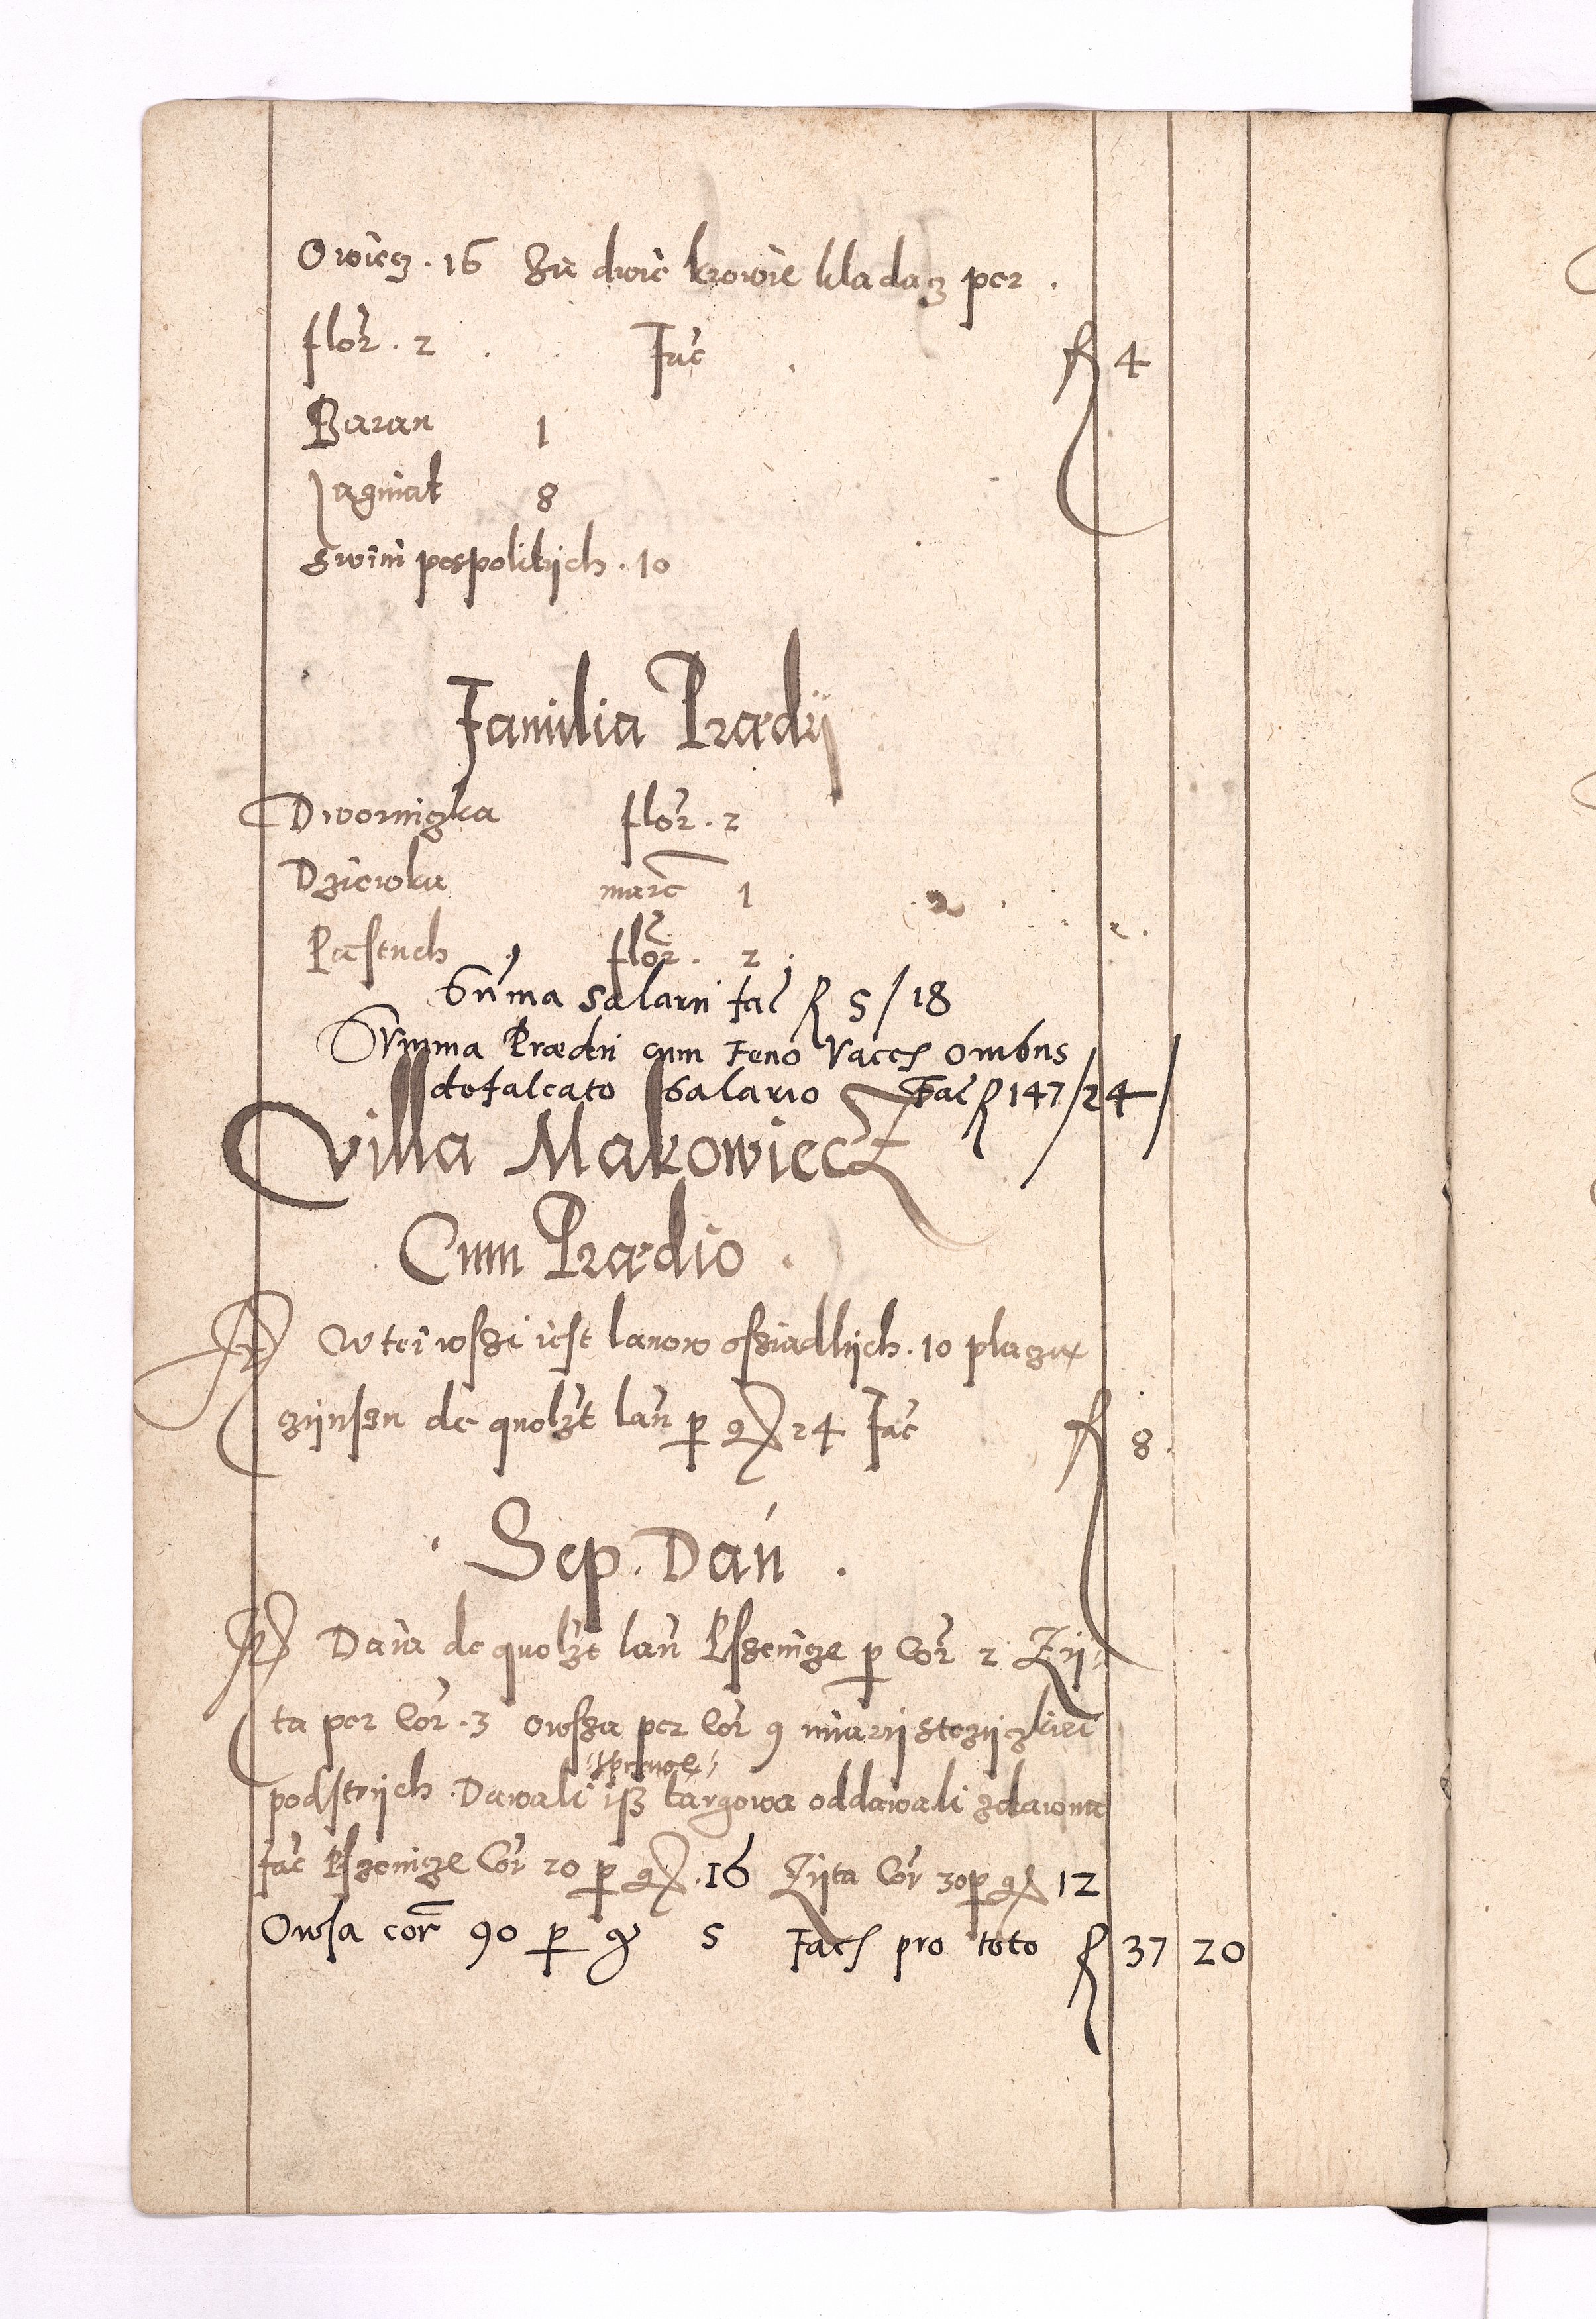 Owiecz . 16 Za dwie krowie kladacz per .
flor . 2 . Fac . f 4
Baran 1
Jagniat 8
Swini pospolitych . 10
Familia Prædij
Dwornigka flor . 2
Dziewka marc 1
Pastuch flor . 2
Summa Salarii fac f 5/18
Summa Prædii cum Feno Vaccis omnibus
defalcato Salario Fac f 147/24/
Villa Makowiecz
Cum Prædio .
W tei wszi iest lanow osziadlych . 10 placza
czynszu de quolzt lan p gr 24 Fac f 8
Sep . Dań .
Daia de quolzt lan Pszenicze p Cor 2 Zy-
ta per Cor . 3 Owsza per Cor 9 miary
podstrych Dawali isz targowa oddawali zdawna
fac Pszenicze Cor 20 p gr . 16 Zyta Cor 30 p gr 12
Owsa cor 90 p gr 5 Facs pro toto f 37 20